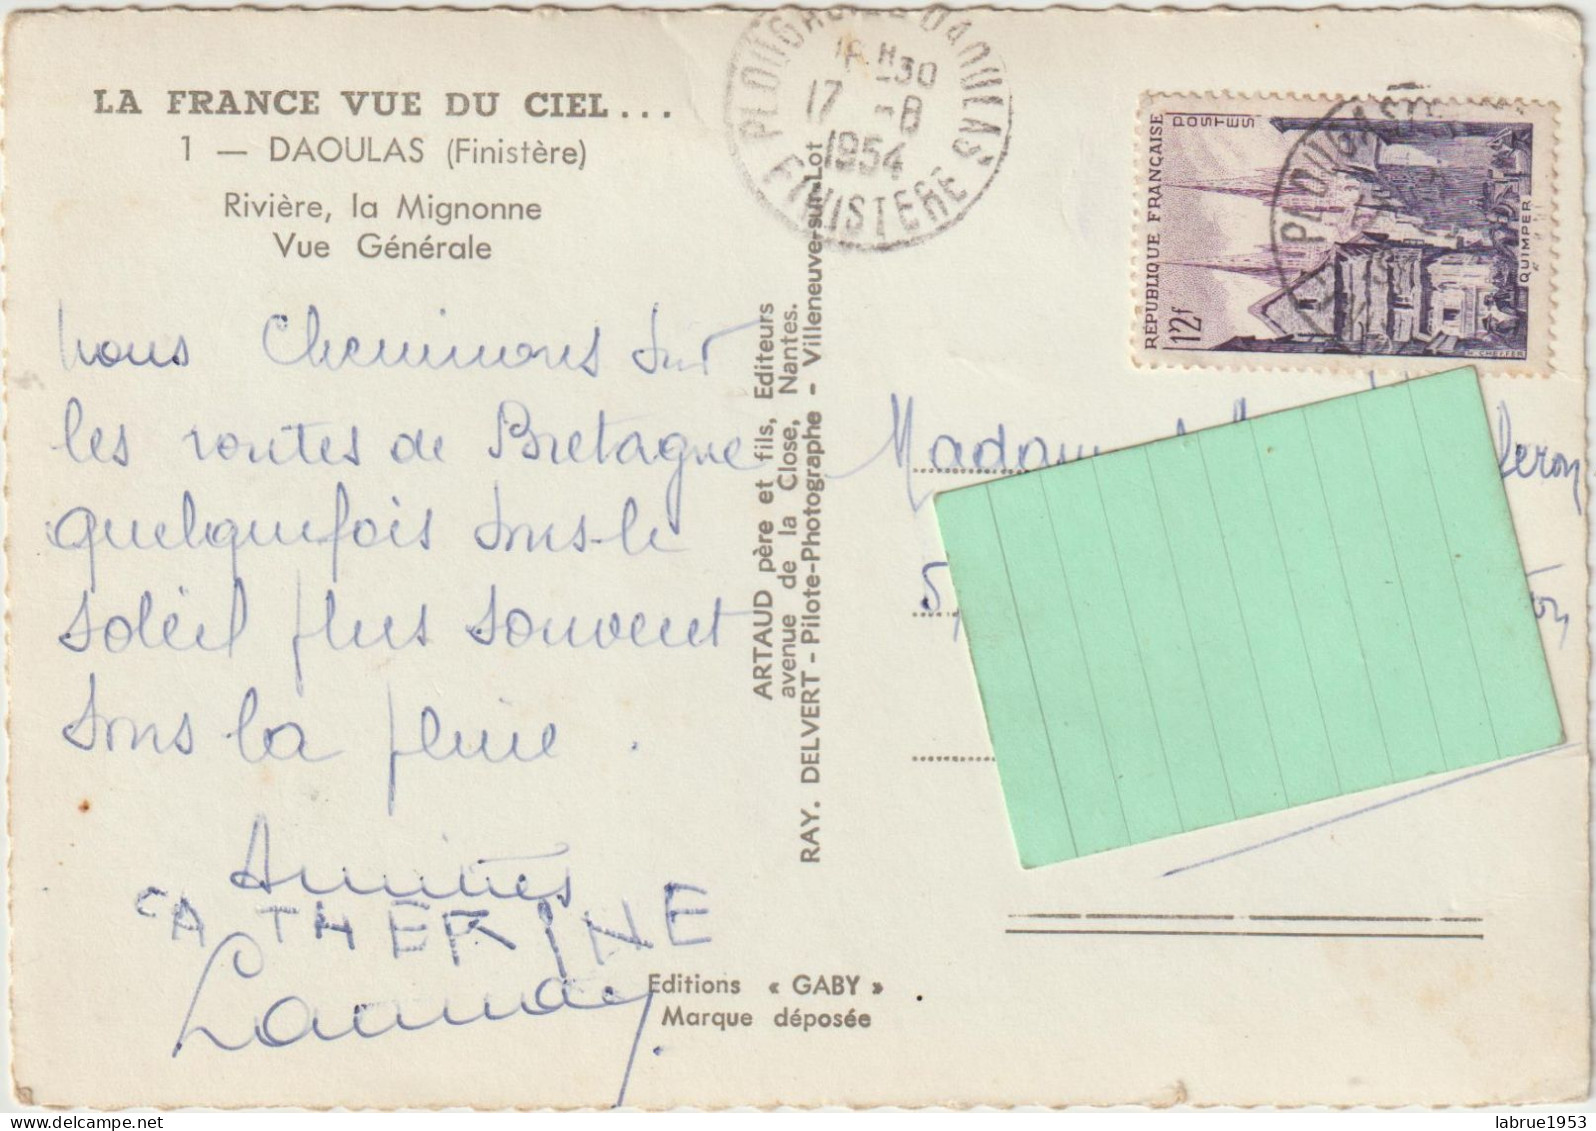 LA FRANCE VUE DU CIEL...
1 — DAOULAS (Finistère)
Rivière, la Mignonne
Vue Générale
nous cheminons sur
les routes de Bretagne
quelquefois sous le
soleil plus souvent
sous la pluie.
Amitiés
CATHERINE
Launay
ARTAUD père et fils, Editeurs
avenue de la Close, Nantes.
RAY. DELVERT - Pilote-Photographe - Villeneuve-sur-Lot
Editions « GABY »
Marque déposée
PLOUGASTEL DAOULAS
18 H30
17 -8
1954
FINISTERE
RÉPUBLIQUE FRANÇAISE
POSTES
12f
QUIMPER
CHEFFER
PLOUGASTE
Madame
5
labrue1953